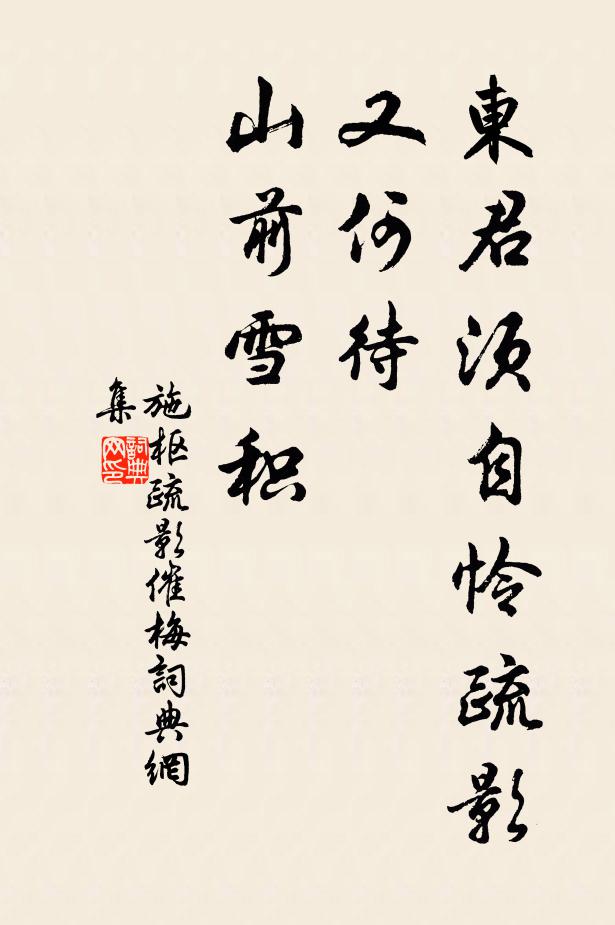 東君須自怜疏影
又何待
山前雪积
施枢疏影催梅詞典網
集
詞典
网印